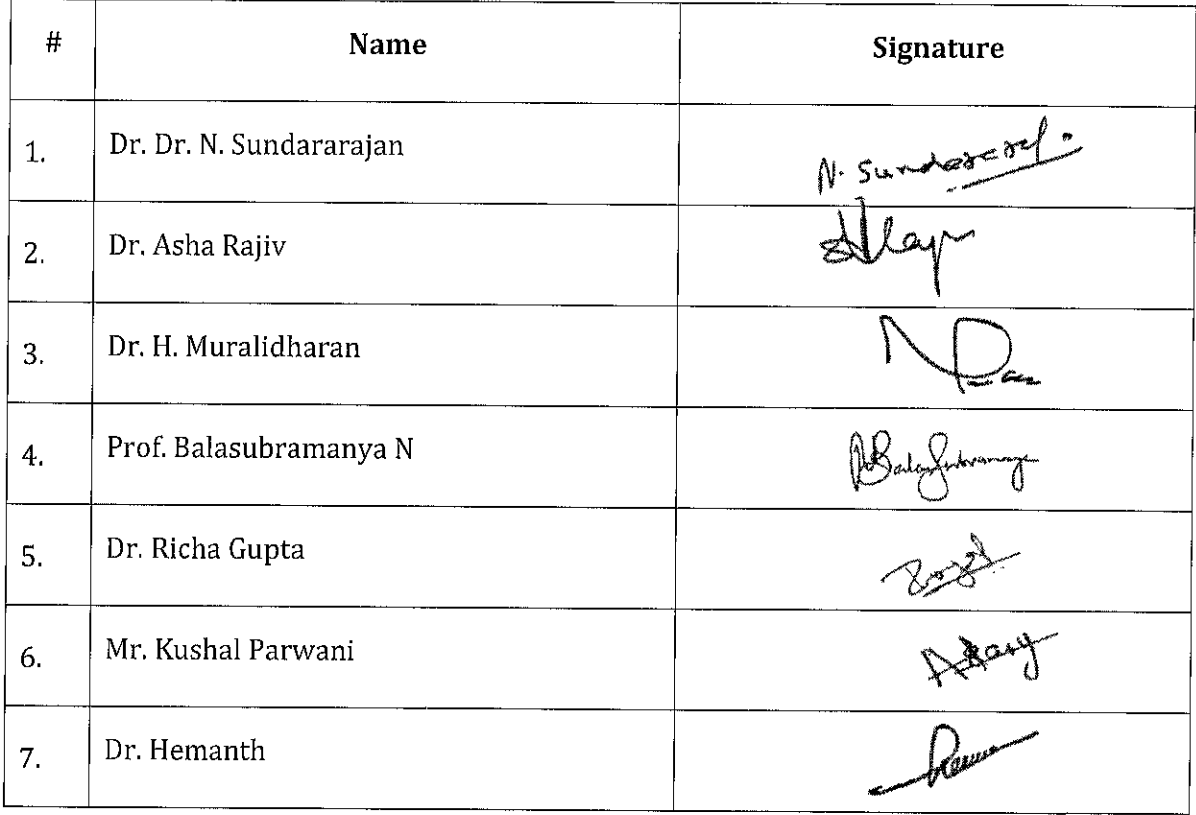 # Name Signature
1. Dr. Dr. N. Sundararajan N. Sundararaj.
2. Dr. Asha Rajiv
3. Dr. H. Muralidharan
4. Prof. Balasubramanya N
5. Dr. Richa Gupta
6. Mr. Kushal Parwani
7. Dr. Hemanth